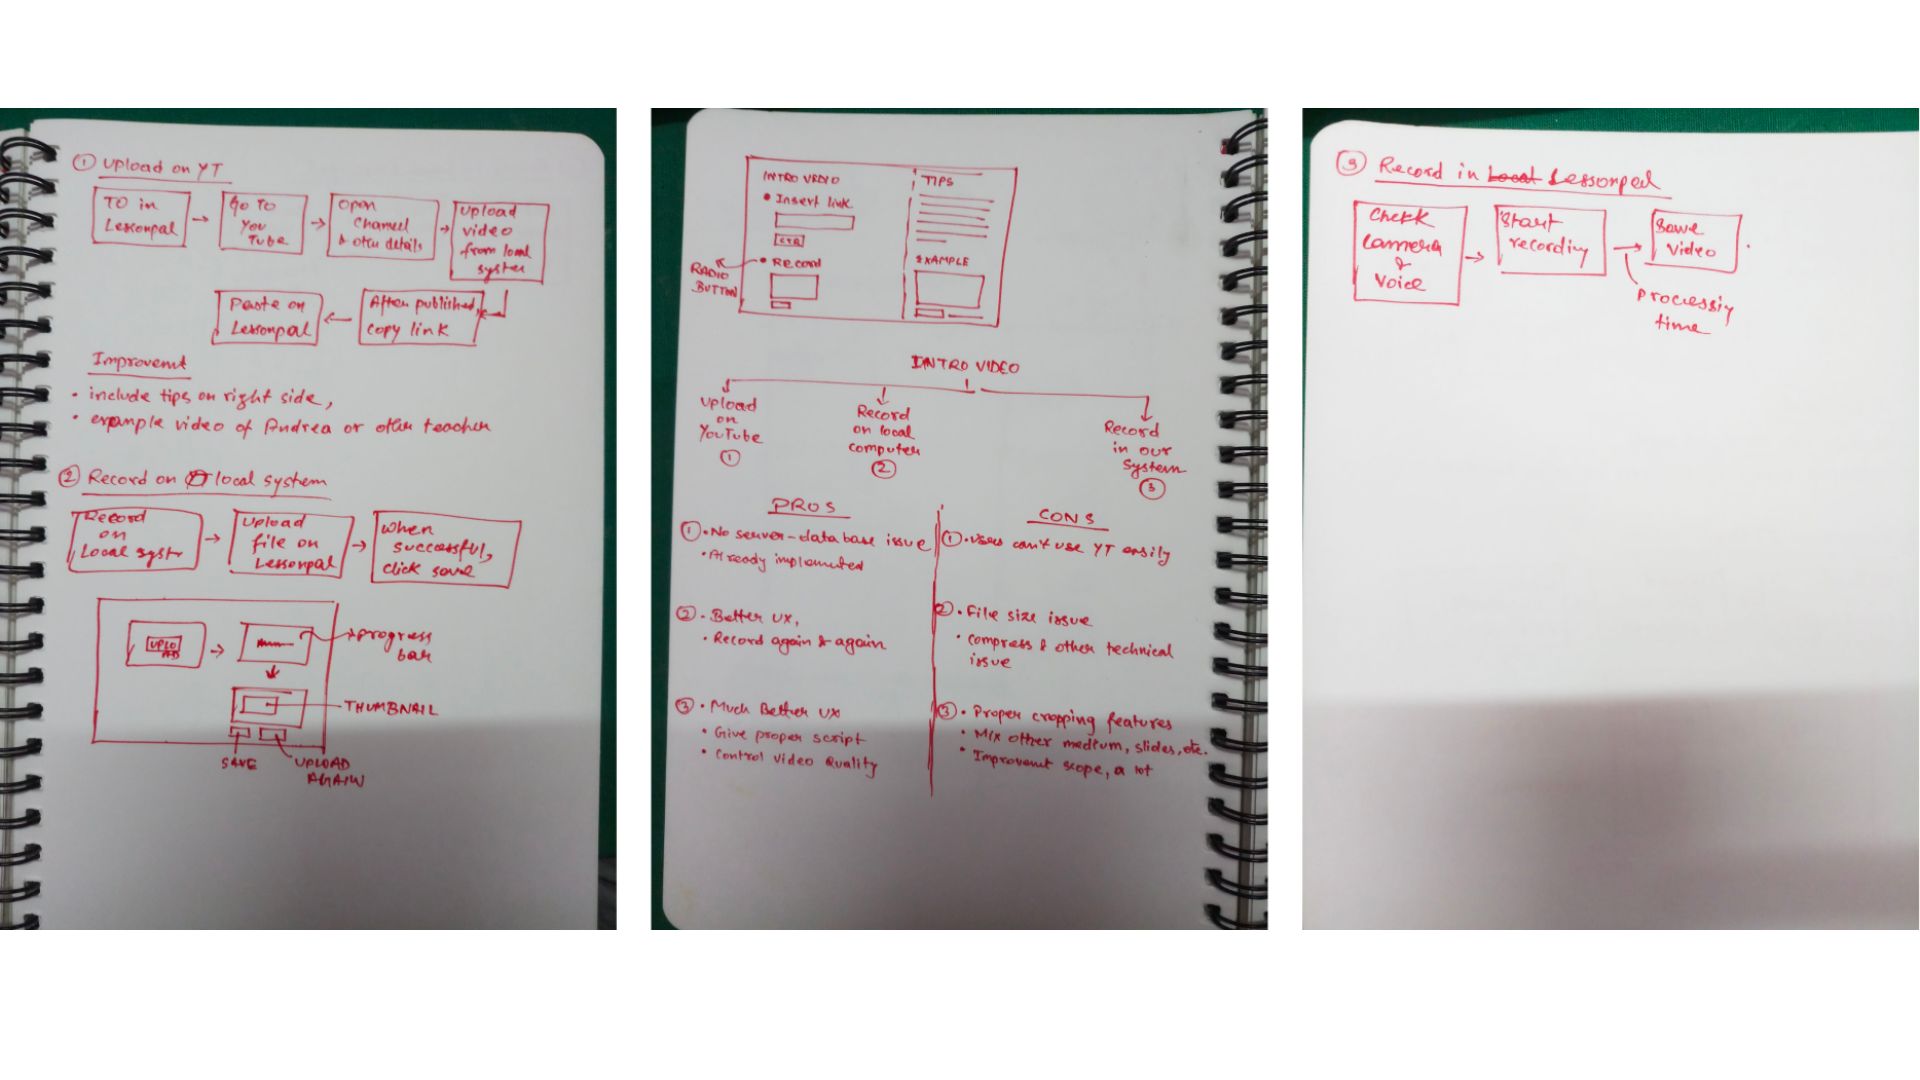 ① Upload on YT
TO in
Lessonpal
Go TO
You
Tube
Open
Channel
& other details
Upload
video
from local
system
After published,
copy link
Paste on
Lessonpal
Improvemt
• include tips on right side,
• example video of Andrea or other teacher
② Record on local system
Record
on
Local systr
Upload
file on
Lessonpal
When
successful,
click save
UPLO
AD
progress
bar
THUMBNAIL
SAVE
UPLOAD
AGAIN
INTRO VIDEO
• Insert link
CTA
• Record
RADIO
BUTTON
TIPS
EXAMPLE
INTRO VIDEO
Upload
on
YouTube
①
Record
on local
computer
②
Record
in our
System
③
PROS
① • No server-database issue
• Already implemented
② • Better UX,
• Record again & again
③ • Much Better UX
• Give proper script
• Control Video Quality
CONS
① • Users can't use YT easily
② • File size issue
• compress & other technical
issue
③ • Proper cropping features
• Mix other medium, slides, etc.
• Improvemt scope, a lot
③ Record in Local Lessonpal
Check
Camera
&
Voice
Start
recording
Save
Video
Processing
time